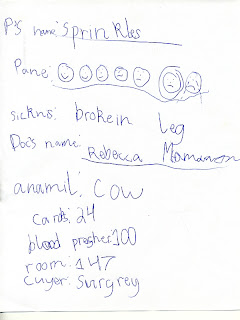 P's name: Sprinkles
Pane:
sickns: brokein Leg
Doc's name: Rebecca
anamil: Cow
cards: 24
blood presher: 100
room: 147
Cuyer: Surgrey